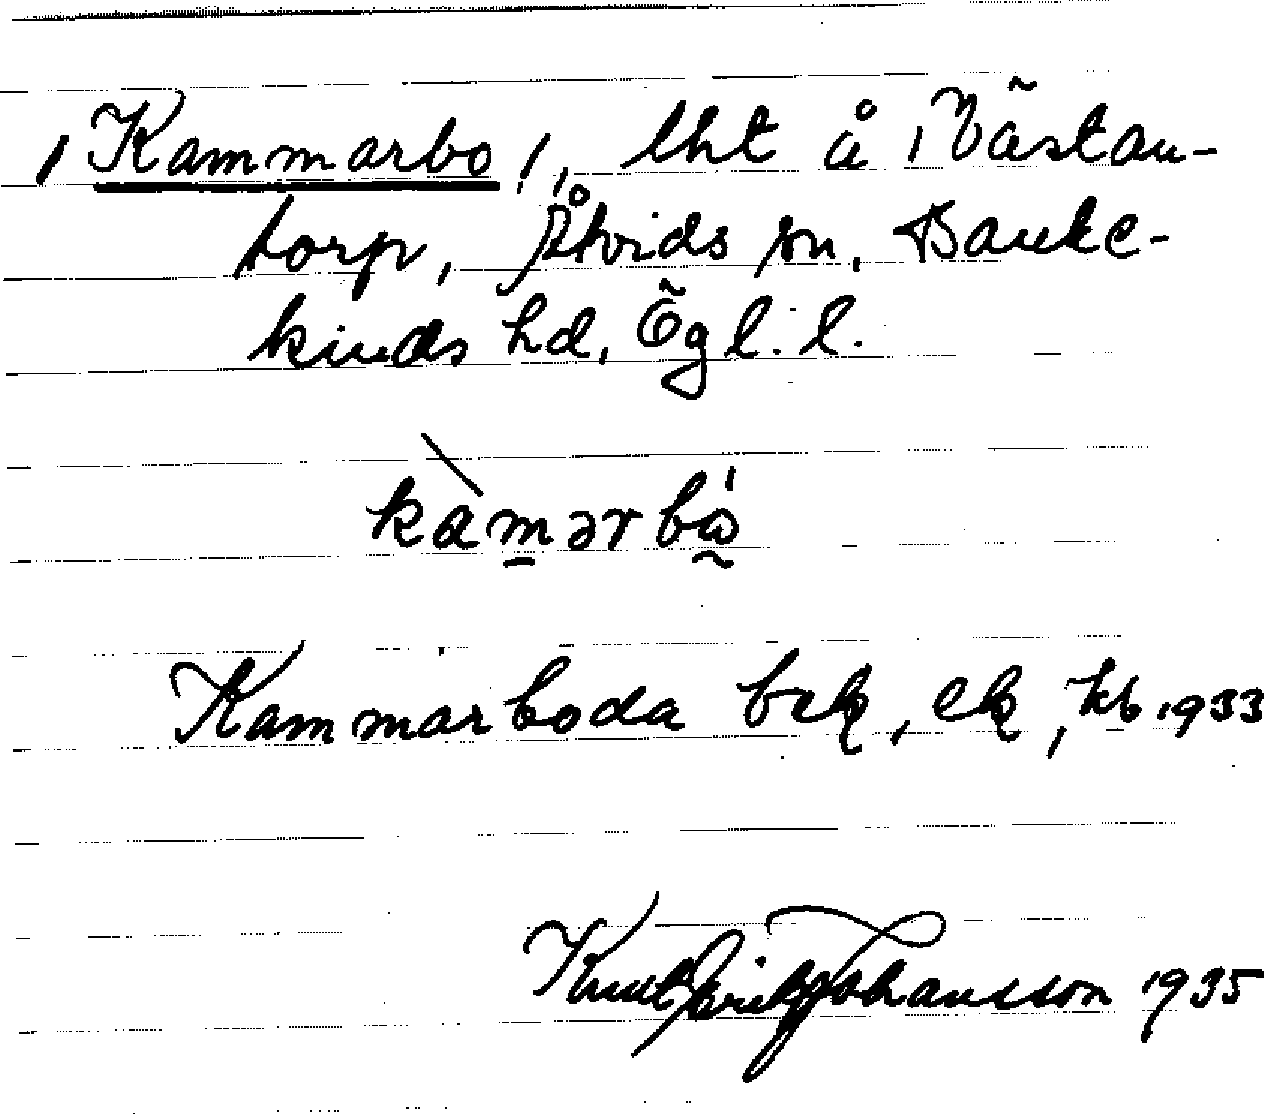 /Kammarbo/, lht å /Västan-
torp, Åtvids sn, Banke-
kinds hd, Ög l. l.
kàmərbɷ̀
Kammarboda bek, ek, kb 1933
Knut Erik Johansson 1935